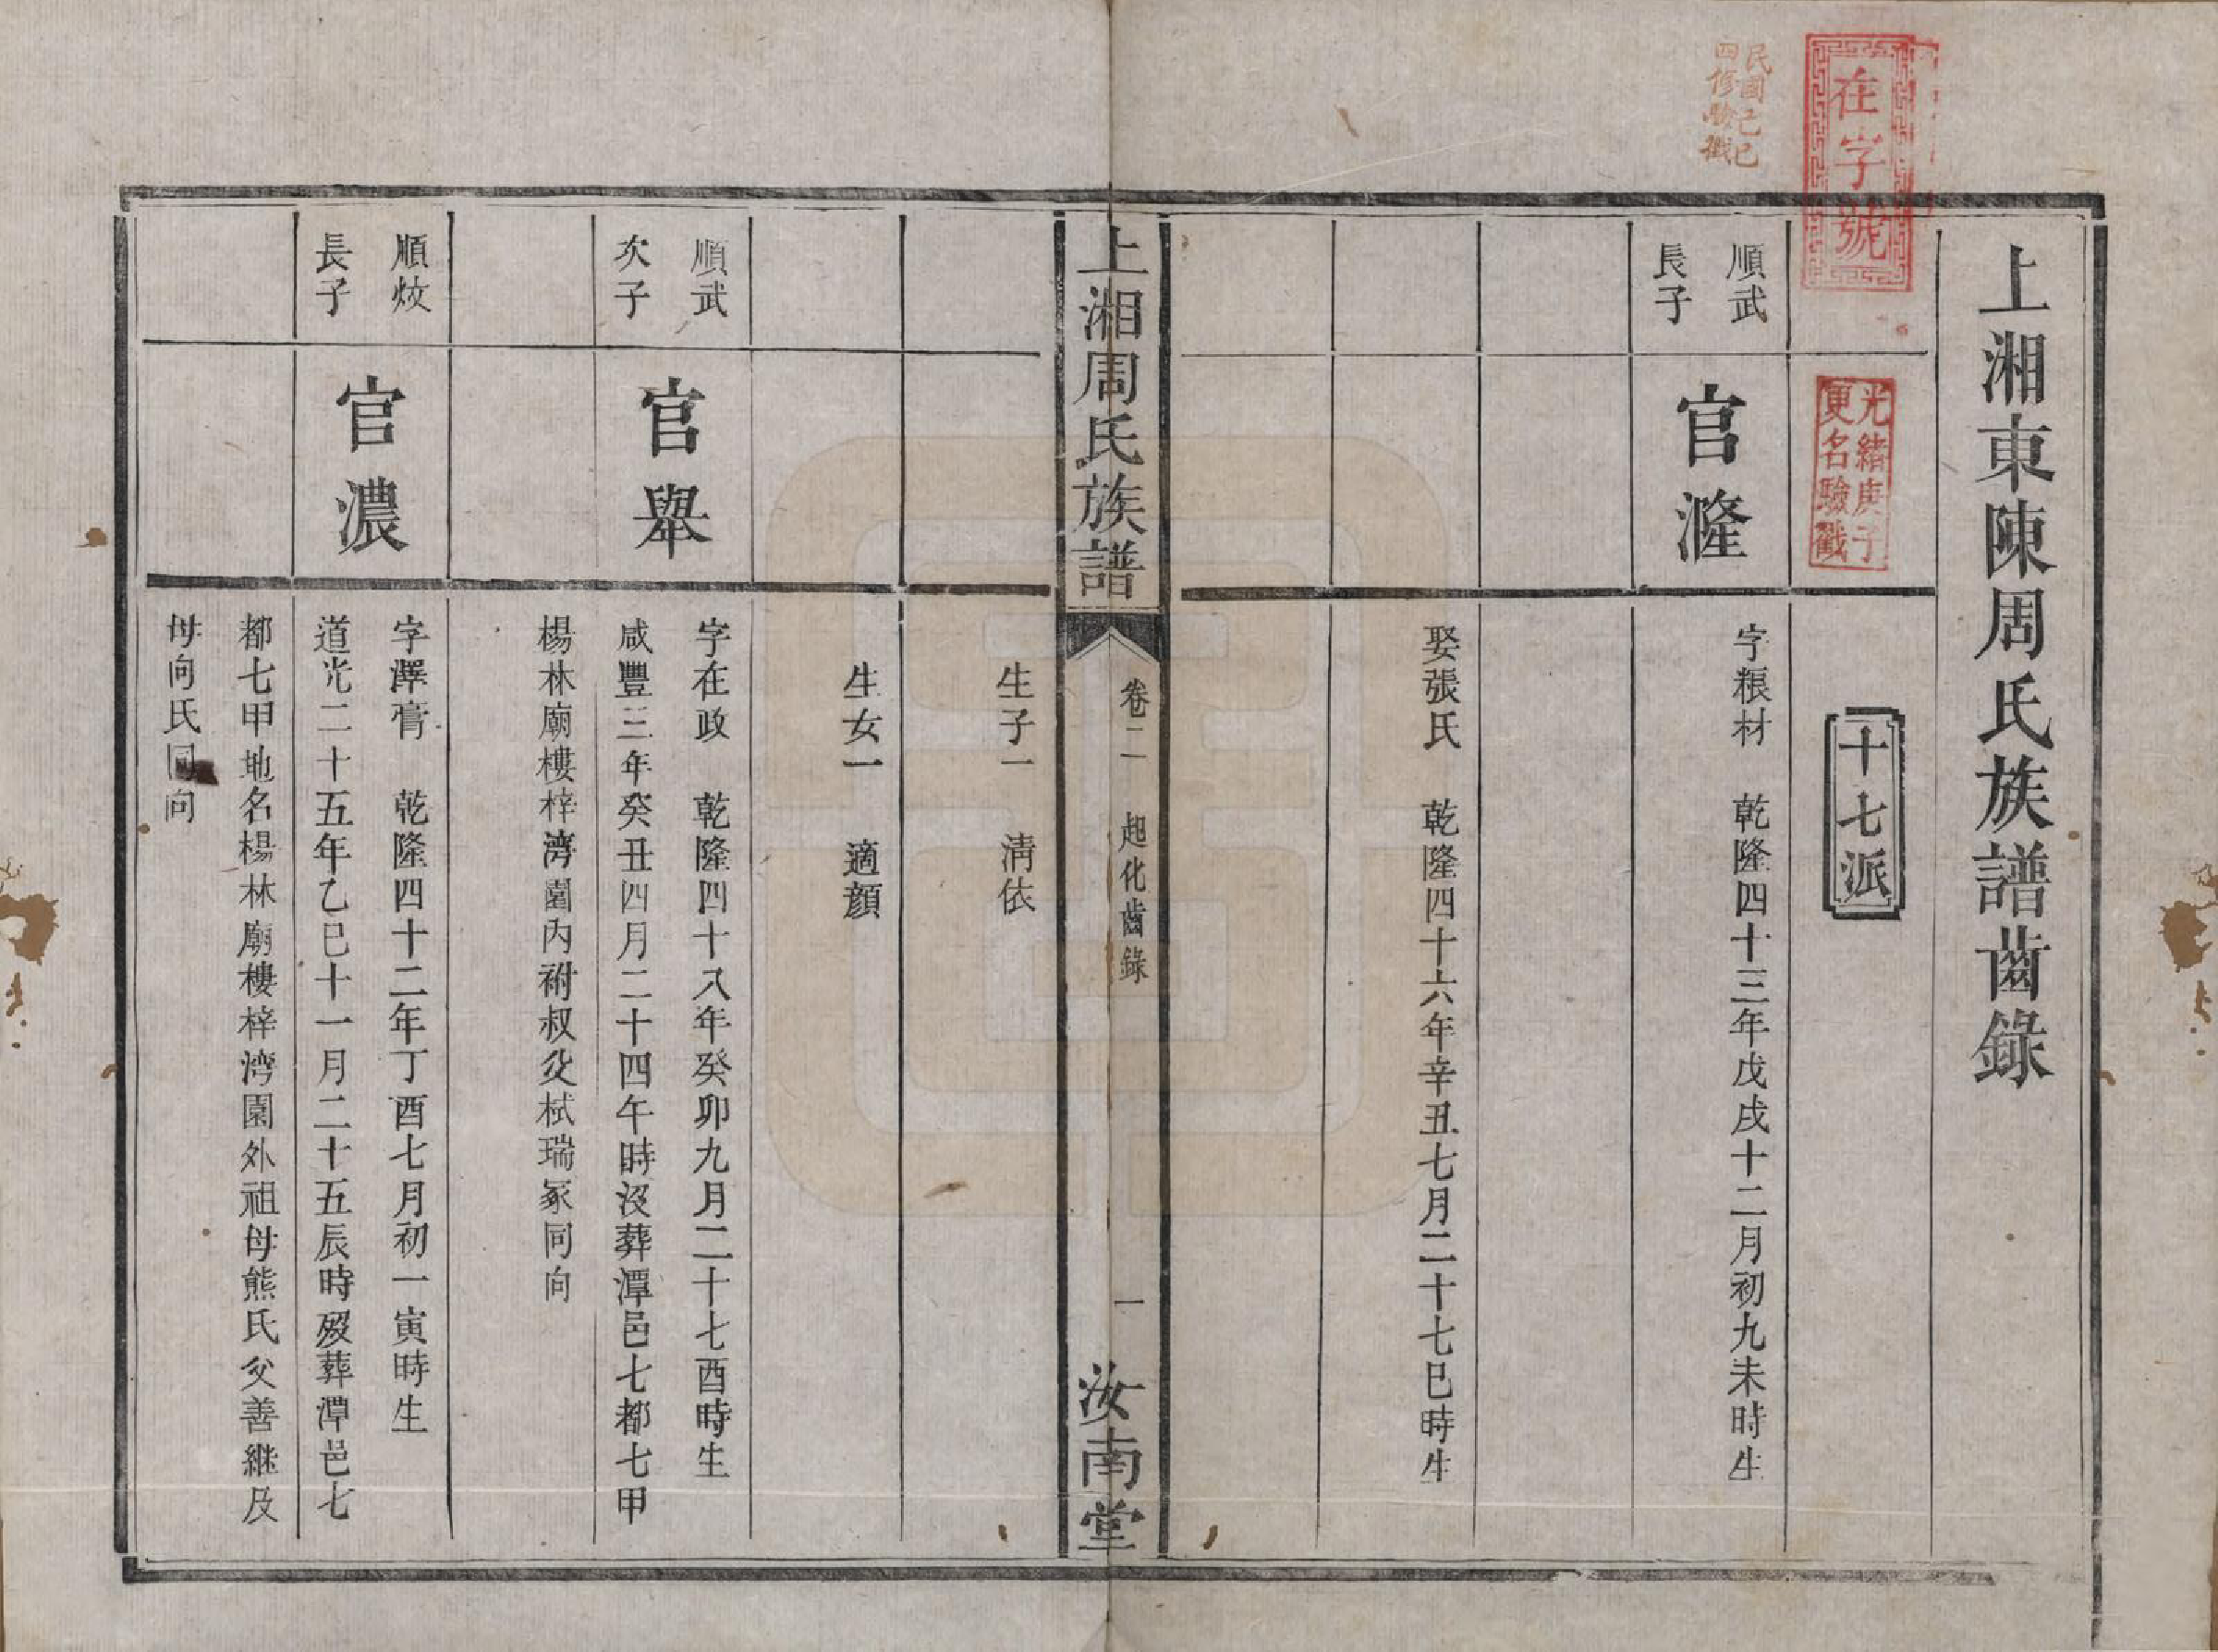 上湘東陳周氏族譜齒錄
在字號
民國己巳
四修驗戳
光緒庚子
更名驗戳
十七派
順武
長子
官漋
字粻材　乾隆四十三年戊戌十二月初九未時生
娶張氏　乾隆四十六年辛丑七月二十七巳時生
上湘周氏族譜
卷二　起化齒錄　一
汝南堂
生子一　清依
生女一　適顏
順武
次子
官舉
字在政　乾隆四十八年癸卯九月二十七酉時生
咸豐三年癸丑四月二十四午時沒葬潭邑七都七甲
楊林廟樓梓灣園內祔叔父栻瑞冢同向
順炆
長子
官濃
字澤膏　乾隆四十二年丁酉七月初一寅時生
道光二十五年乙巳十一月二十五辰時歿葬潭邑七
都七甲地名楊林廟樓梓湾園外祖母熊氏父善継及
母向氏同向